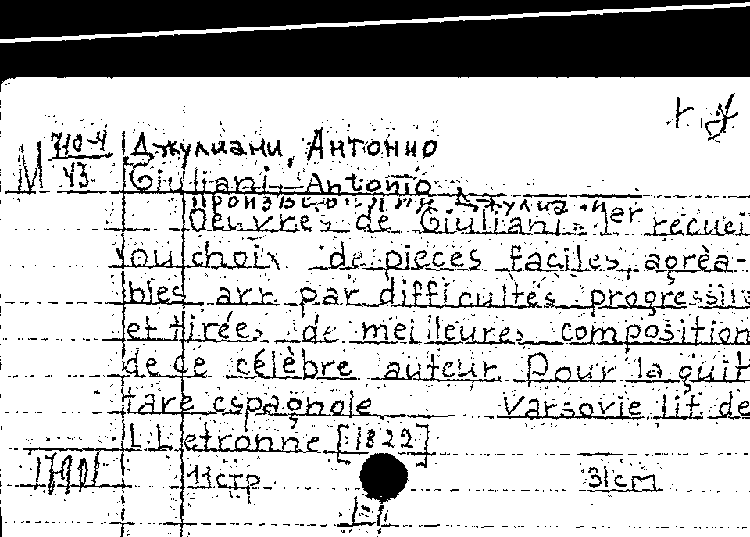 М 710-4 Джулиани, Антонио
43 Giuliani, Antonio
Oeuvres de Giuliani. 1er recuei
ou choix de pieces faciles, agrèa-
bles arr par difficultés progressiv
et tirées de meilleures composition
de ce célèbre auteur. Pour la guit
tare espagnole Varsovie, lit de
L. Letronne [1822]
11 стр 31cm